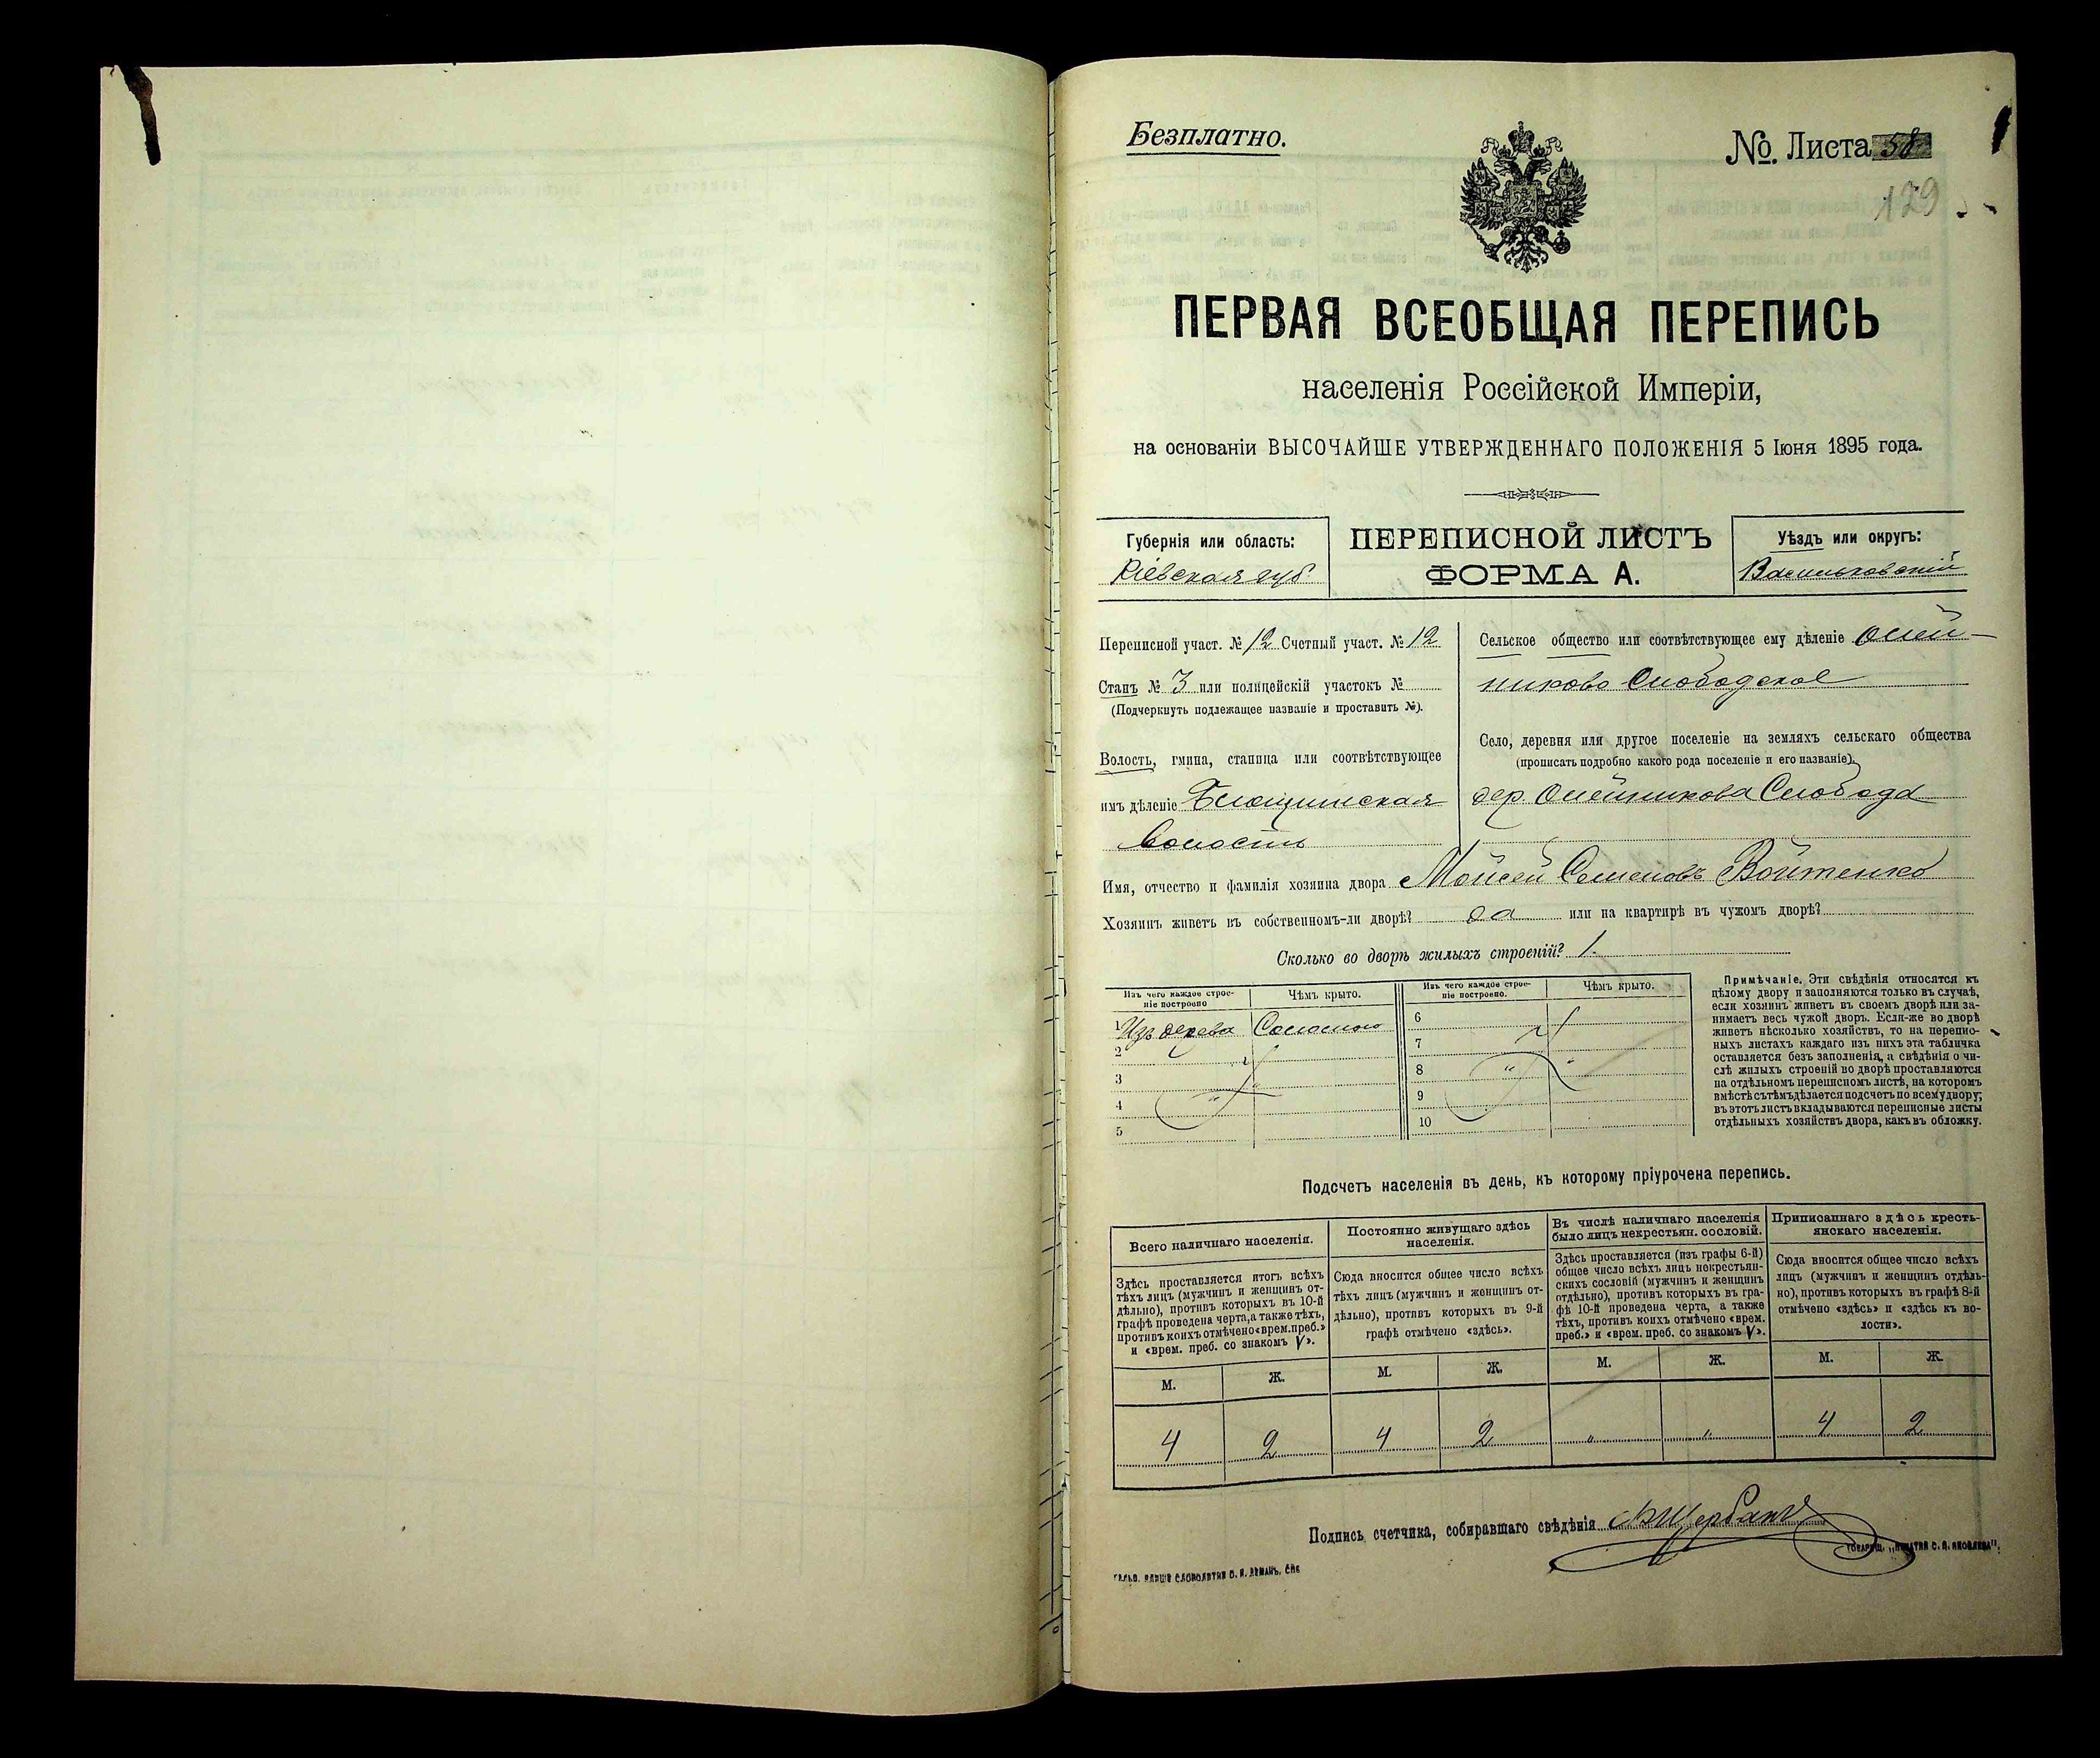 Безплатно.
№. Листа 58
129
ПЕРВАЯ ВСЕОБЩАЯ ПЕРЕПИСЬ
населенія Россійской Имперіи,
на основаніи ВЫСОЧАЙШЕ УТВЕРЖДЕННАГО ПОЛОЖЕНІЯ 5 Іюня 1895 года.
Губернія или область:
Кіевская губ
ПЕРЕПИСНОЙ ЛИСТЪ
ФОРМА А.
Уѣздъ или округъ:
Васильковскій
Переписной участ. № 12 Счетный участ. № 12
Станъ № 3 или полицейскій участокъ №
(Подчеркнуть подлежащее названіе и проставить №).
Волость, гмина, станица или соотвѣтствующее
имъ дѣленіе
Волость
Сельское общество или соотвѣтствующее ему дѣленіе Олей-
никово Слободское
Село, деревня или другое поселеніе на земляхъ сельскаго общества
(прописать подробно какого рода поселеніе и его названіе)
дер. Олейникова Слобода
Имя, отчество и фамилія хозяина двора Мойсей Семеновъ Войтенко
Хозяинъ живетъ въ собственномъ-ли дворѣ? да или на квартирѣ въ чужомъ дворѣ?
Сколько во дворѣ жилыхъ строеній? 1.
Изъ чего каждое строе-
ніе построено
Чѣмъ крыто.
Изъ чего каждое строе-
ніе построено.
Чѣмъ крыто.
1 Изъ дерева Соломою
2
3
4
5
6
7
8
9
10
Примѣчаніе. Эти свѣдѣнія относятся къ
цѣлому двору и заполняются только въ случаѣ,
если хозяинъ живетъ въ своемъ дворѣ или за-
нимаетъ весь чужой дворъ. Если-же во дворѣ
живетъ нѣсколько хозяйствъ, то на перепис-
ныхъ листахъ каждаго изъ нихъ эта табличка
оставляется безъ заполненія, а свѣдѣнія о чи-
слѣ жилыхъ строеній во дворѣ проставляются
на отдѣльномъ переписномъ листѣ, на которомъ
вмѣстѣ съ тѣмъ дѣлается подсчетъ по всему двору;
въ этотъ листъ вкладываются переписные листы
отдѣльныхъ хозяйствъ двора, какъ въ обложку.
Подсчетъ населенія въ день, къ которому пріурочена перепись.
Всего наличнаго населенія.
Постоянно живущаго здѣсь
населенія.
Въ числѣ наличнаго населенія
было лицъ некрестьян. сословій.
Приписаннаго здѣсь кресть-
янскаго населенія.
Здѣсь проставляется итогъ всѣхъ
тѣхъ лицъ (мужчинъ и женщинъ от-
дѣльно), противъ которыхъ въ 10-й
графѣ проведена черта, а также тѣхъ,
противъ коихъ отмѣчено «врем. преб.»
и «врем. преб. со знакомъ V».
Сюда вносится общее число всѣхъ
тѣхъ лицъ (мужчинъ и женщинъ от-
дѣльно), противъ которыхъ въ 9-й
графѣ отмѣчено «здѣсь».
Здѣсь проставляется (изъ графы 6-й)
общее число всѣхъ лицъ некрестьян-
скихъ сословій (мужчинъ и женщинъ
отдѣльно), противъ которыхъ въ гра-
фѣ 10-й проведена черта, а также
тѣхъ, противъ коихъ отмѣчено «врем.
преб.» и «врем. преб. со знакомъ V».
Сюда вносится общее число всѣхъ
лицъ (мужчинъ и женщинъ отдѣль-
но), противъ которыхъ въ графѣ 8-й
отмѣчено «здѣсь» и «здѣсь къ во-
лости».
М. Ж. М. Ж. М. Ж. М. Ж.
4 2 4 2 " " 4 2
Подпись счетчика, собиравшаго свѣдѣнія
ТОВАРИЩ. „ПЕЧАТНЯ С. П. ЯКОВЛЕВА".